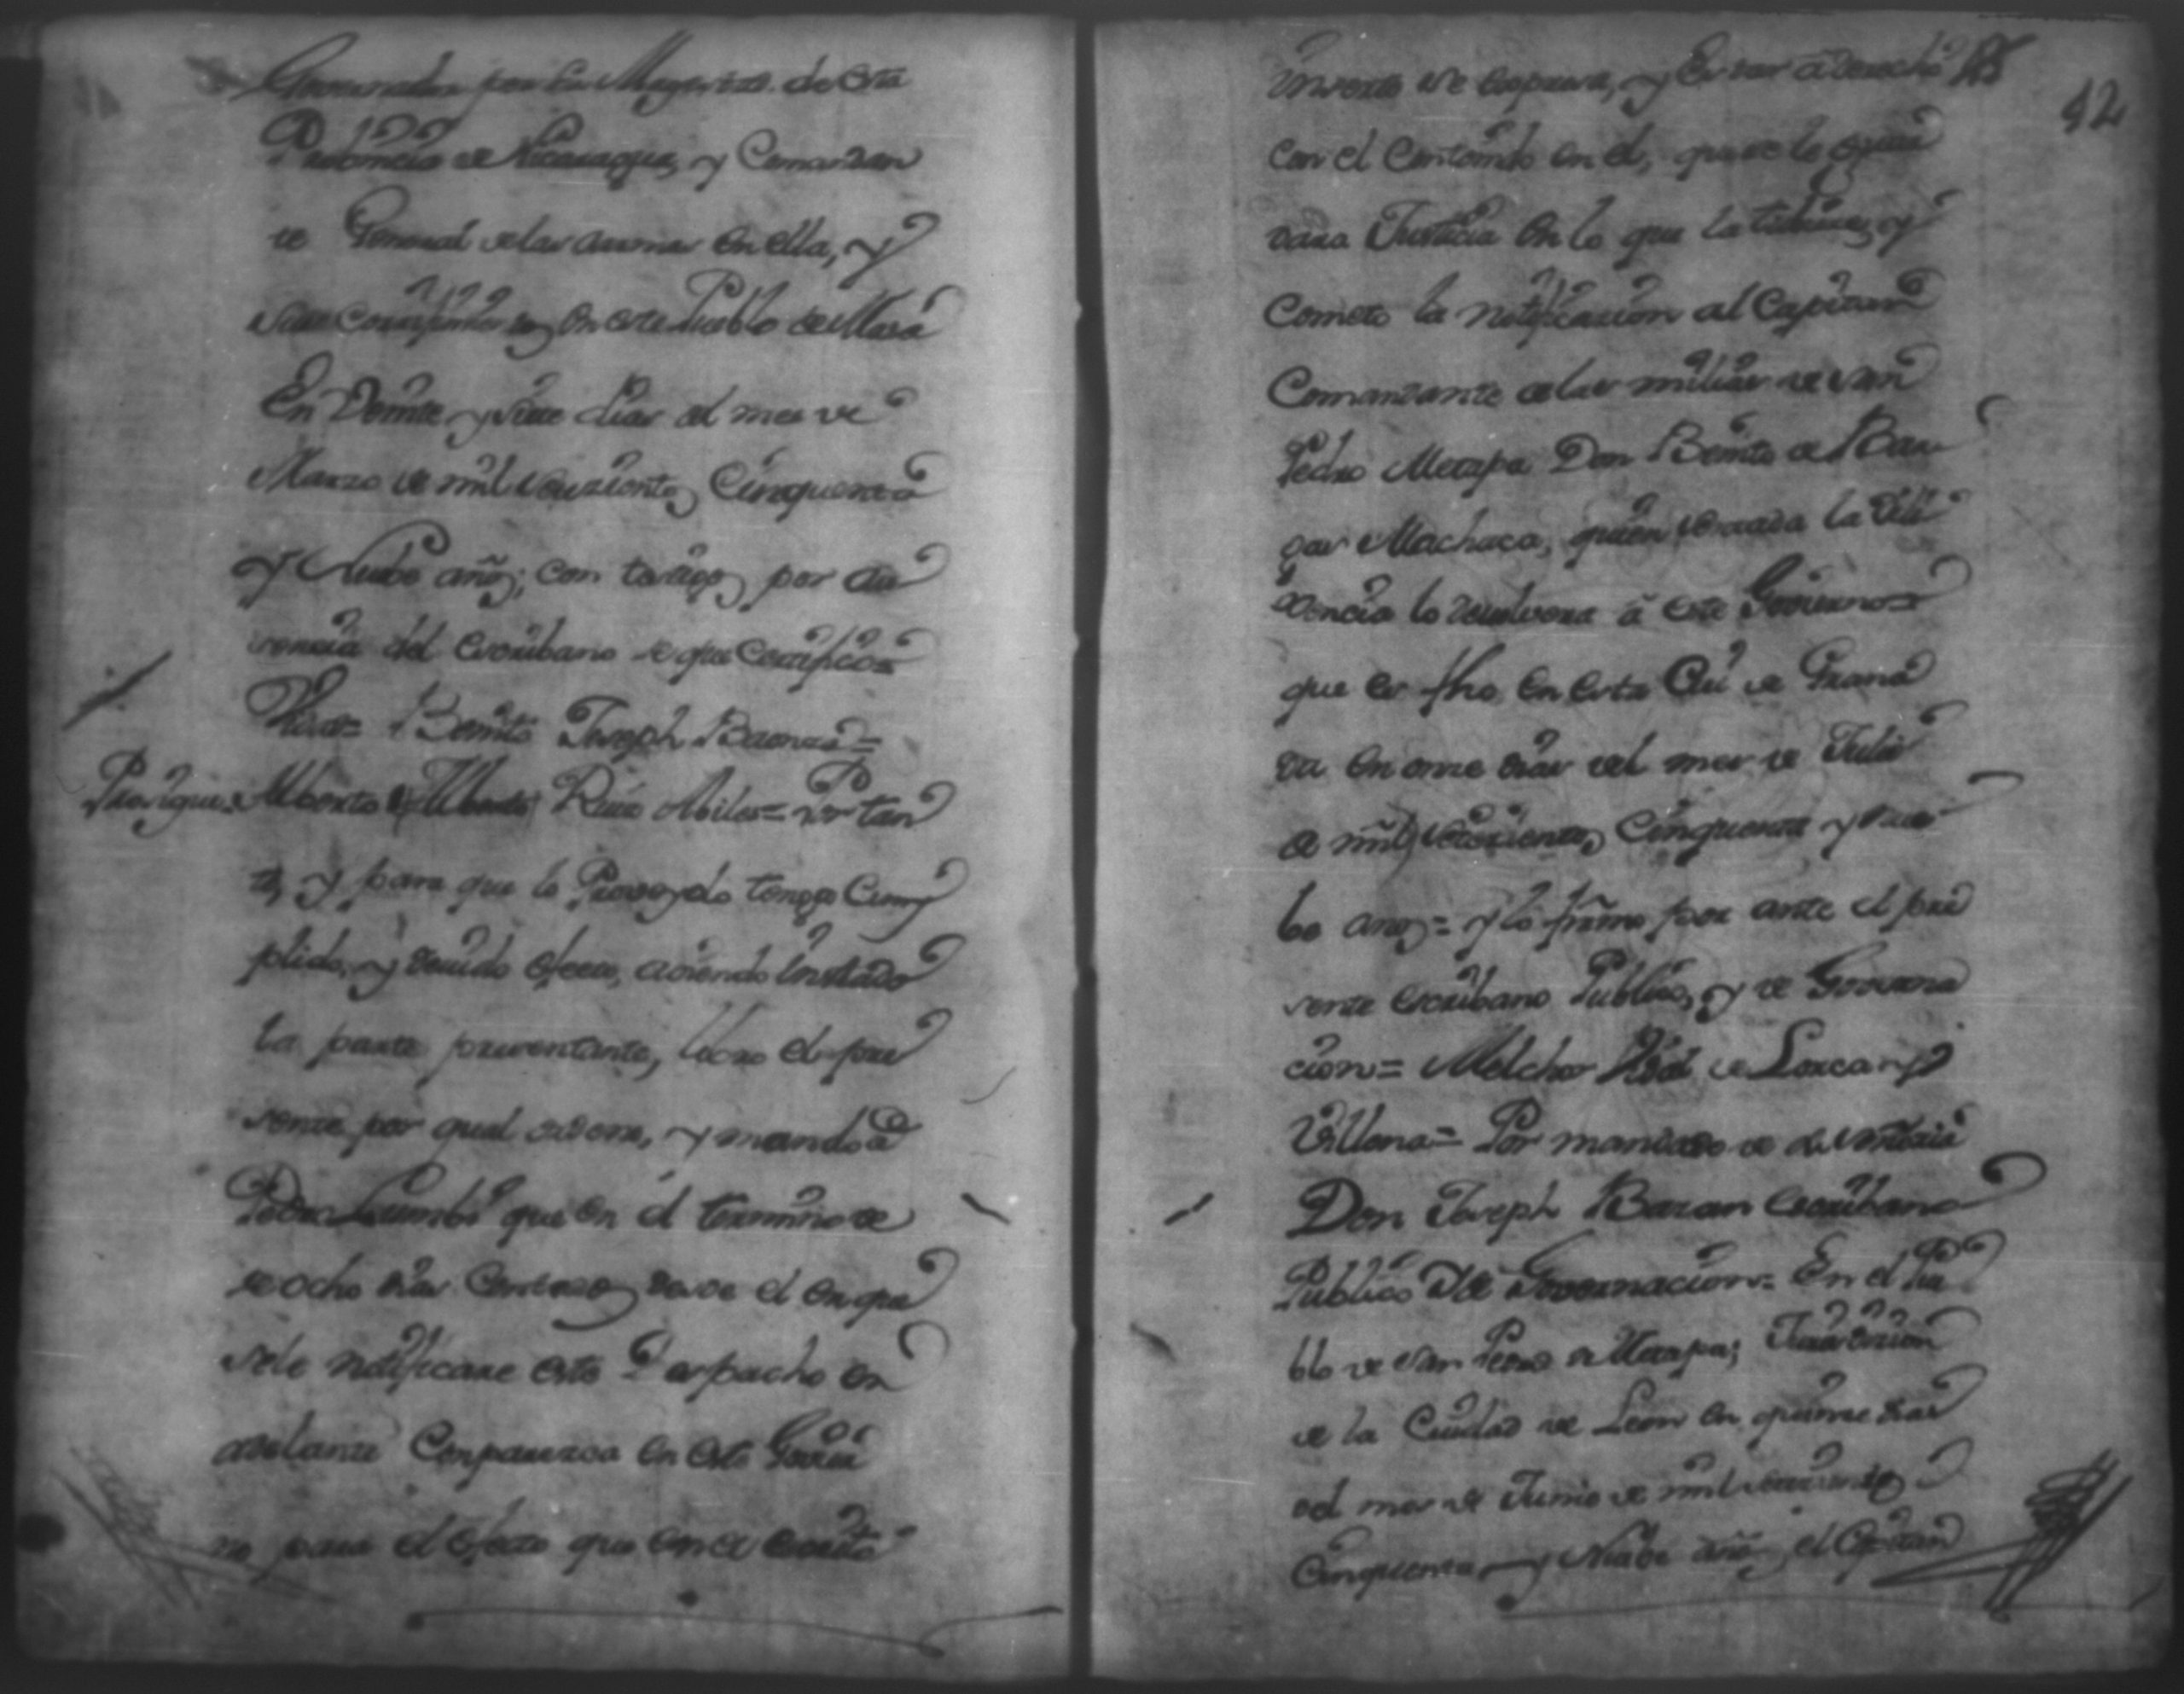 Governador por Su Magestad de esta
Provincia de Nicaragua, y Comandan
te General de las armas en ella, y
en este Pueblo de Masa
En Veinte y siete dias del mes de
Marzo de mil setezientos Cinquenta
y Nuebe años; con testigos por au
sencia del Escribano de que Certifico=
Vidar= Benito Joseph Baonza=
Prosigue= Alberto Alberto Ruiz Abiles= Por tan
to, y para que lo Proveydo tenga Cum
plido, y devido efecto, aciendo Instado
la parte presentante, libro el pre
sente por qual ordeno, y mando a
Pedro que en el termino de
de ocho dias Contados desde el en que
se le notificare este Despacho en
adelante Comparezca en este Govier
no para el efecto que en el escrito
Inserto se expresa, y Estar a derecho
42
con el Contenido en el, que se le oyrá
dara Justicia en lo que la tubiere, y
Cometo la notificacion al Capitan
Comandante de las milicias de San
Pedro Metapa Don Benito de Bar
gas Machuca, quien evacuada la Dili
gencia lo debolvera á este Govierno=
que es fho en esta Ciu de Grana
da en onze dias del mes de Julio
de mil setezientos, Cinquenta y nue
be años= y lo firmo por ante el pre
sente escribano Publico, y de Governa
cion= Melchor Vidal de Lorca, y
Villena= Por mandado de su señoria
Don Joseph Bazan Escribano
Publico de Governacion= En el Pue
blo de San Pedro de Metapa; Jurisdicion
de la Ciudad de Leon en quinze dias
del mes de Junio de mil setezientos
Cinquenta y Nuebe años el Capitan